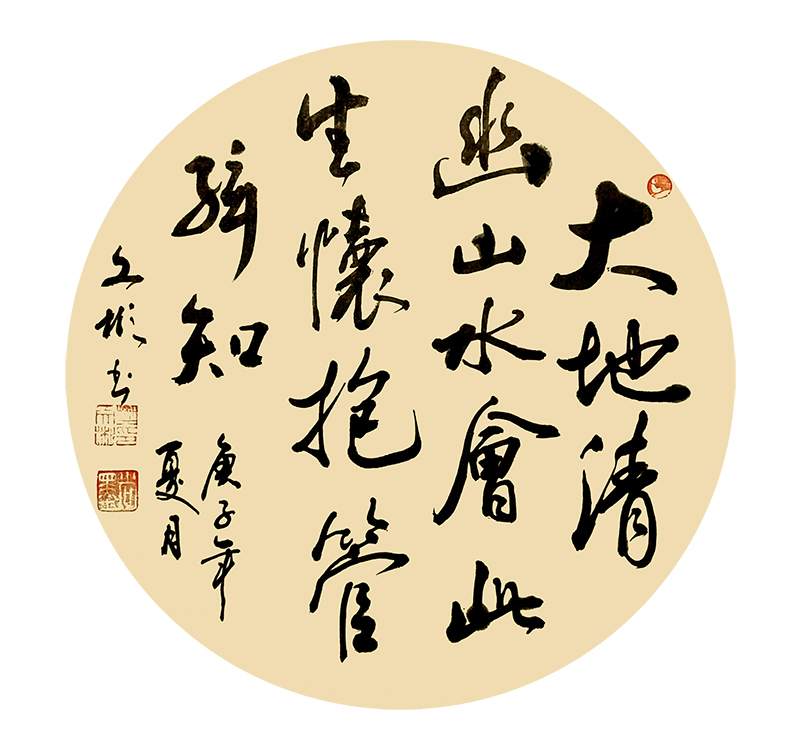 大地清
幽山水會此
生懷抱管
絃知
庚子年
夏月
文彬书